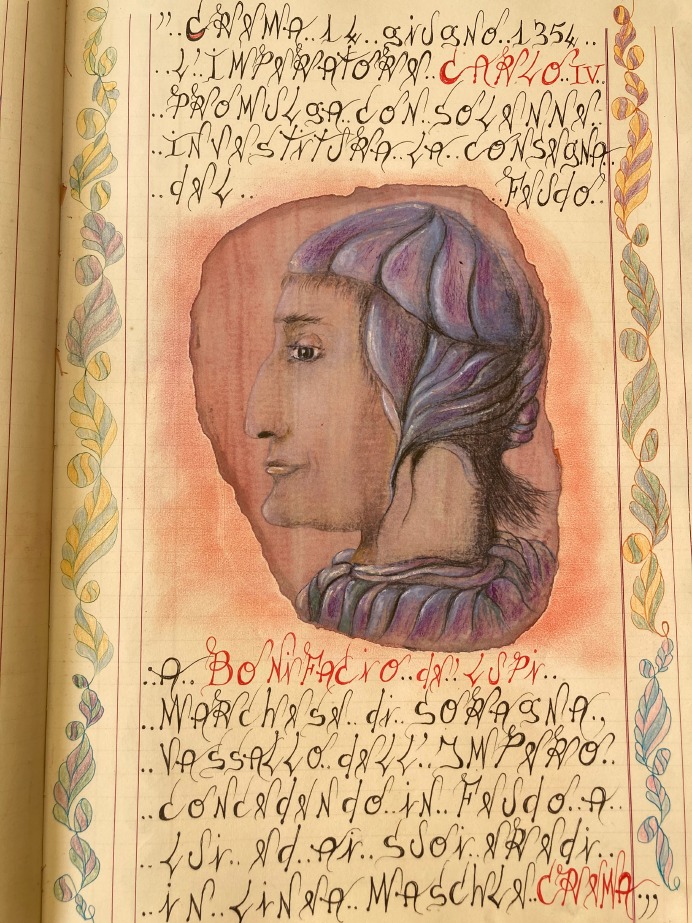 "..CREMA..14..giugno..1354..
..L'IMPERATORE..CARLO..IV..
..PROMULGA..CON..SOLENNE..
..INVESTITURA..LA..CONSEGNA..
..dEL.. ..FEUdO..
..A..BONiFACiO..de'..LUPi..
..MARCHESE..di..SORAGNA.,
..VASSALLO..dELL'..IMPERO..
..CONCEdENdO..iN..FEUdO..A..
..LUi..Ed..Ai..SUOi..EREdi..
..iN..LiNEA..MASCHiLE..CREMA..,,